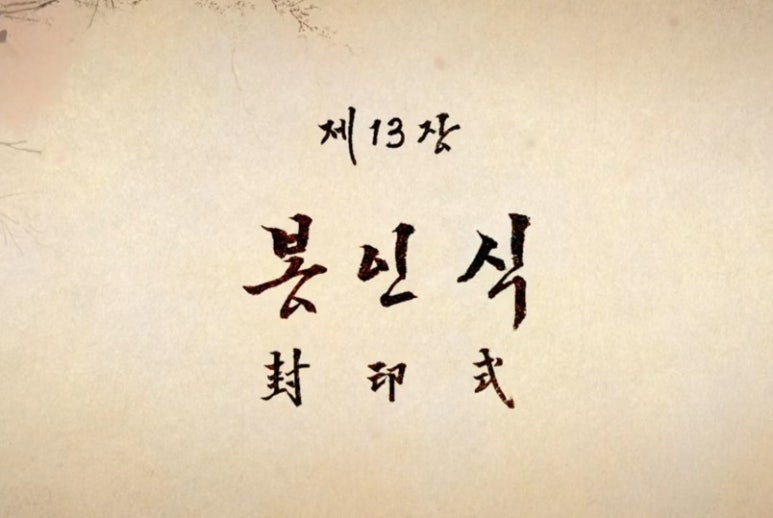 제 13 장
봉인식
封印式